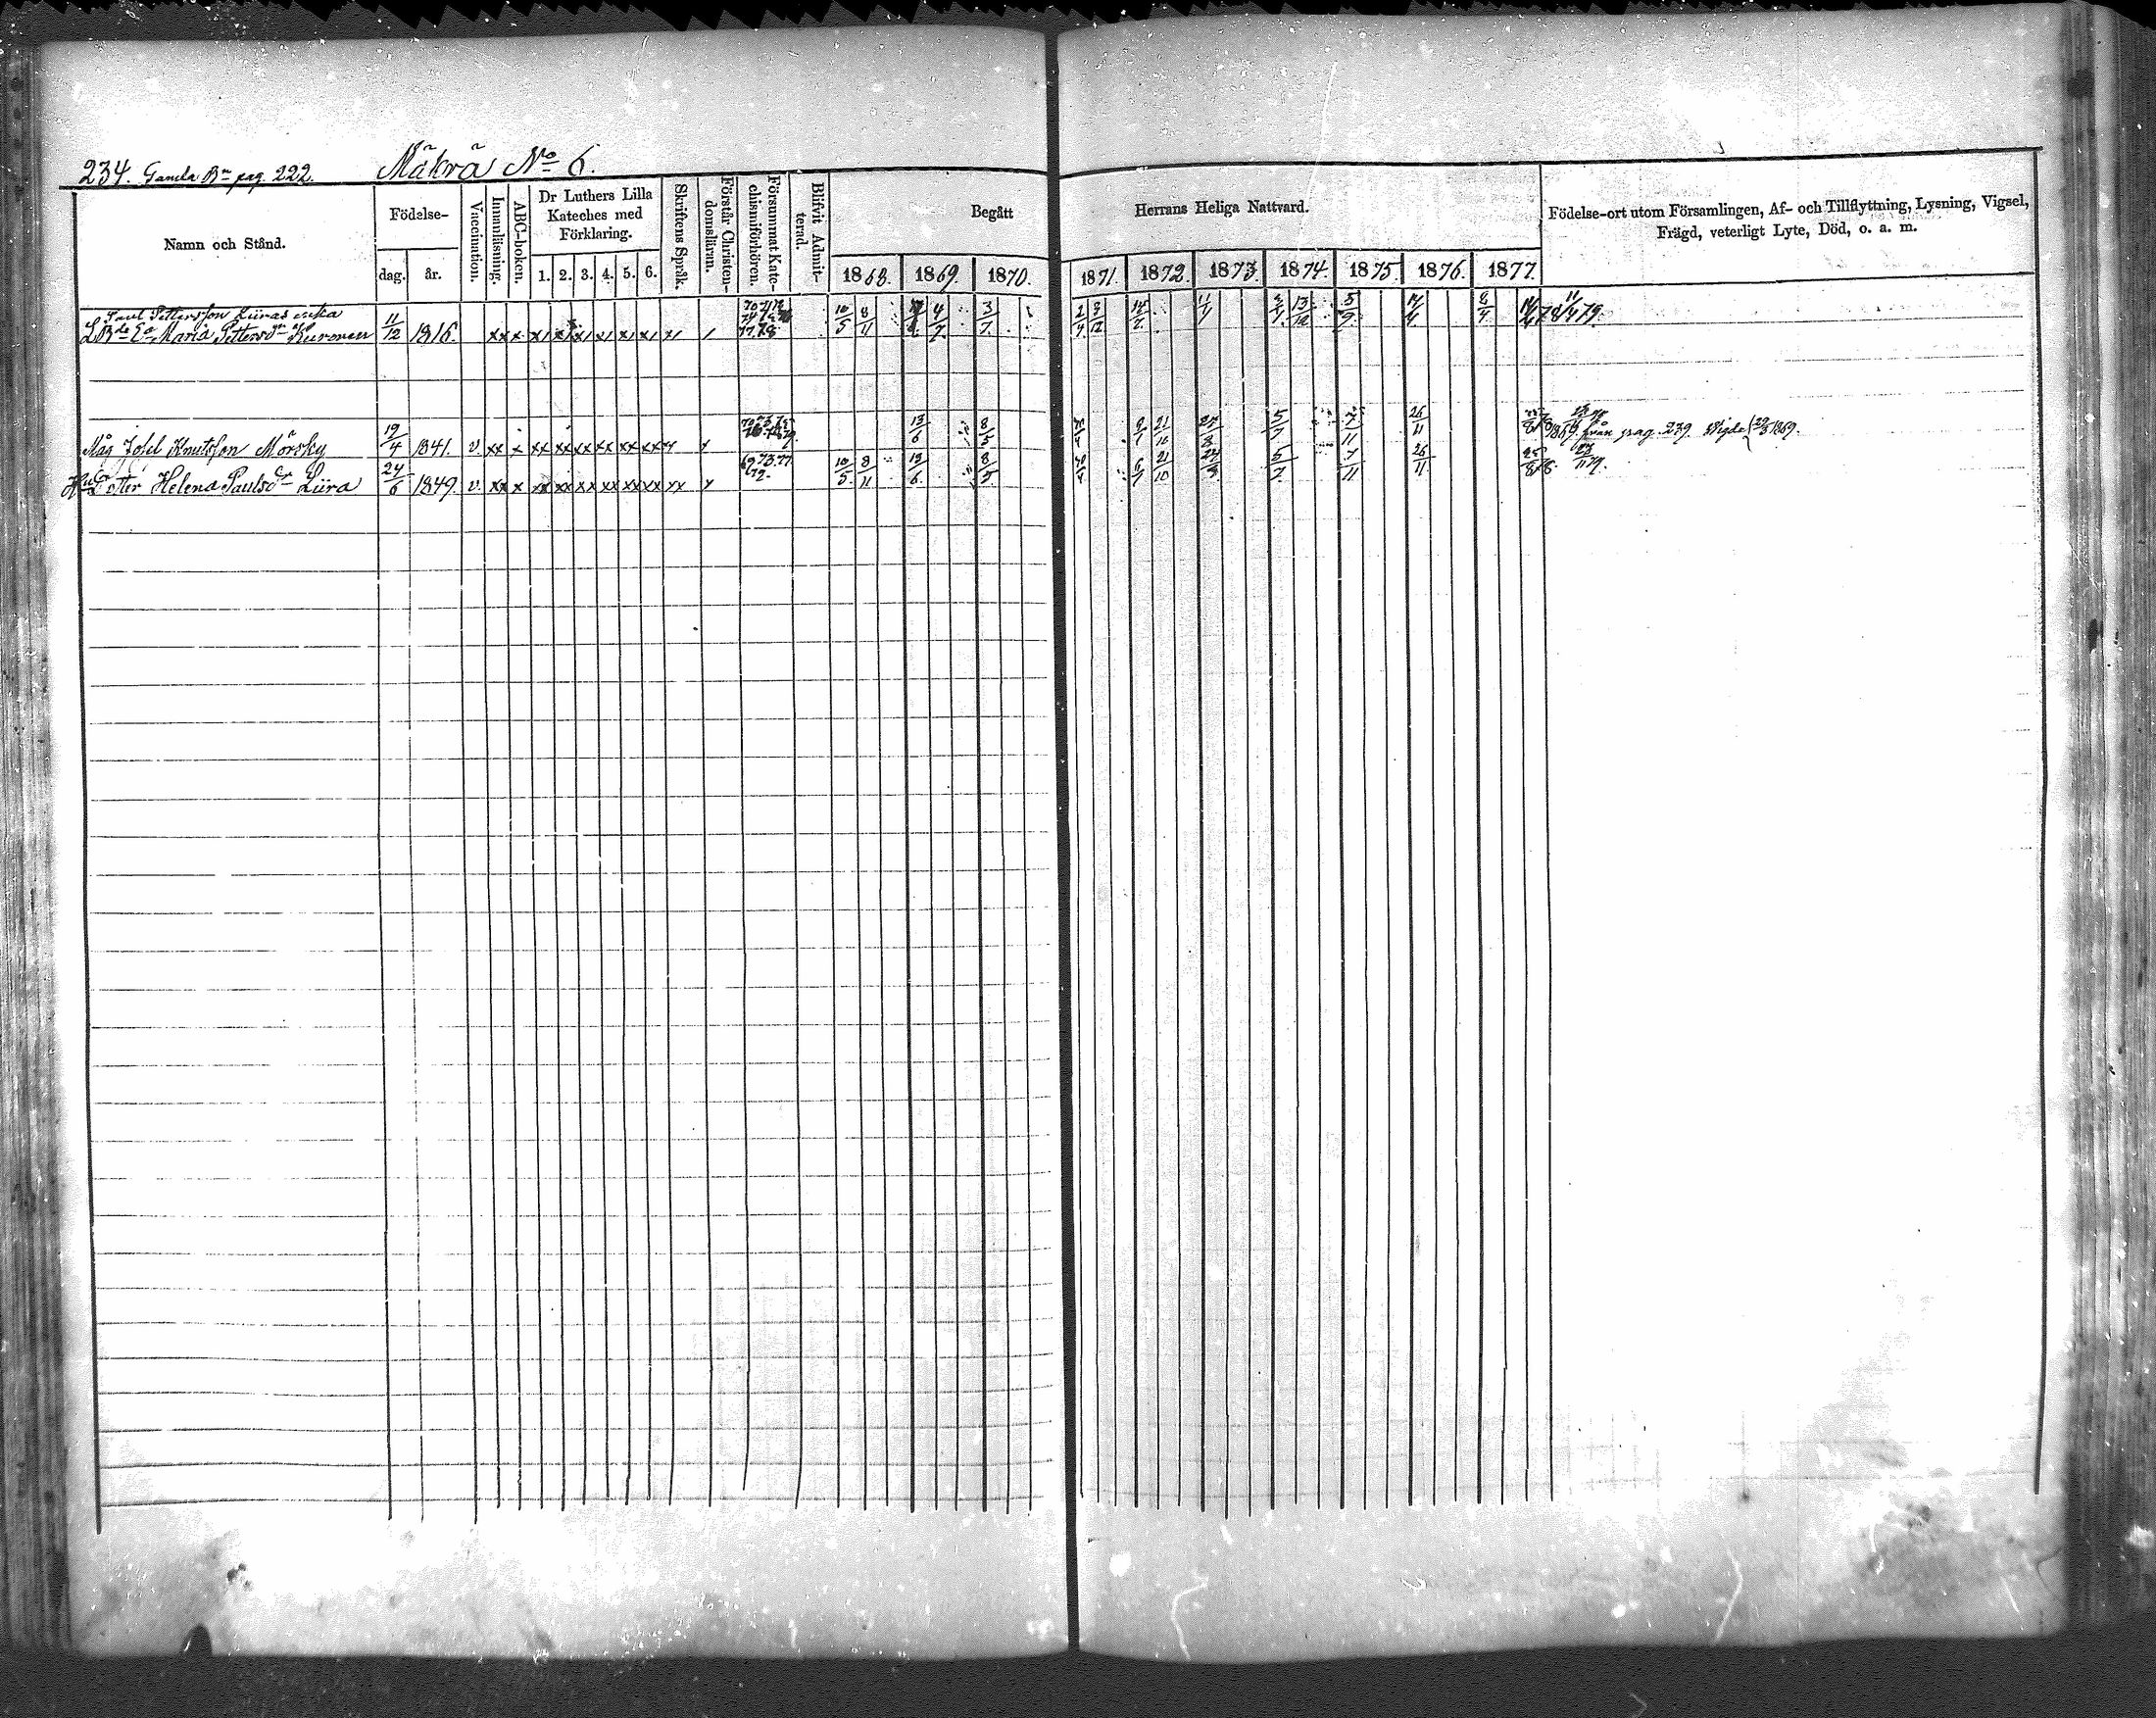 234. Gamla Bn pag. 222. Mäkrä No 6.
Namn och Stånd.
Födelse-
dag.
år.
Vaccination.
Innanläsning.
ABC-boken.
Dr Luthers Lilla
Kateches med
Förklaring.
1. 2. 3. 4. 5. 6.
Skriftens Språk.
Förstår Christen-
domsläran.
Försummat Kate-
chismiförhören.
Blifvit Admit-
terad.
Begått Herrans Heliga Nattvard.
1868. 1869. 1870. 1871. 1872. 1873. 1874. 1875. 1876. 1877.
Födelse-ort utom Församlingen, Af- och Tillflyttning, Lysning, Vigsel,
Frägd, veterligt Lyte, Död, o. a. m.
Paul Pettersson Liiras enka
Maria Pettersdr Kuronen 11/12 1816. xx x x/ x/ x/ x/ x/ x/ x/ /
77.78
10/5 8/11 4/7 3/7 2/4 3/12 11/1 13/10 5/9
11/4 79.
Måg Josef Knutsson Mörsky 19/4 1841. v. xx x xx xx xx xx xx xx
13/6 8/5 21/10 5/7 7/11 26/11
från pag. 239. Vigde 1869.
Hu
Dotter Helena Paulsdr Liira 24/6 1849. v. xx x xx xx xx xx xx xx xx
69. 73. 77.
72.
10/5 8/11 13/6 8/5 21/10 5/7 7/11 26/11 25/8 78.